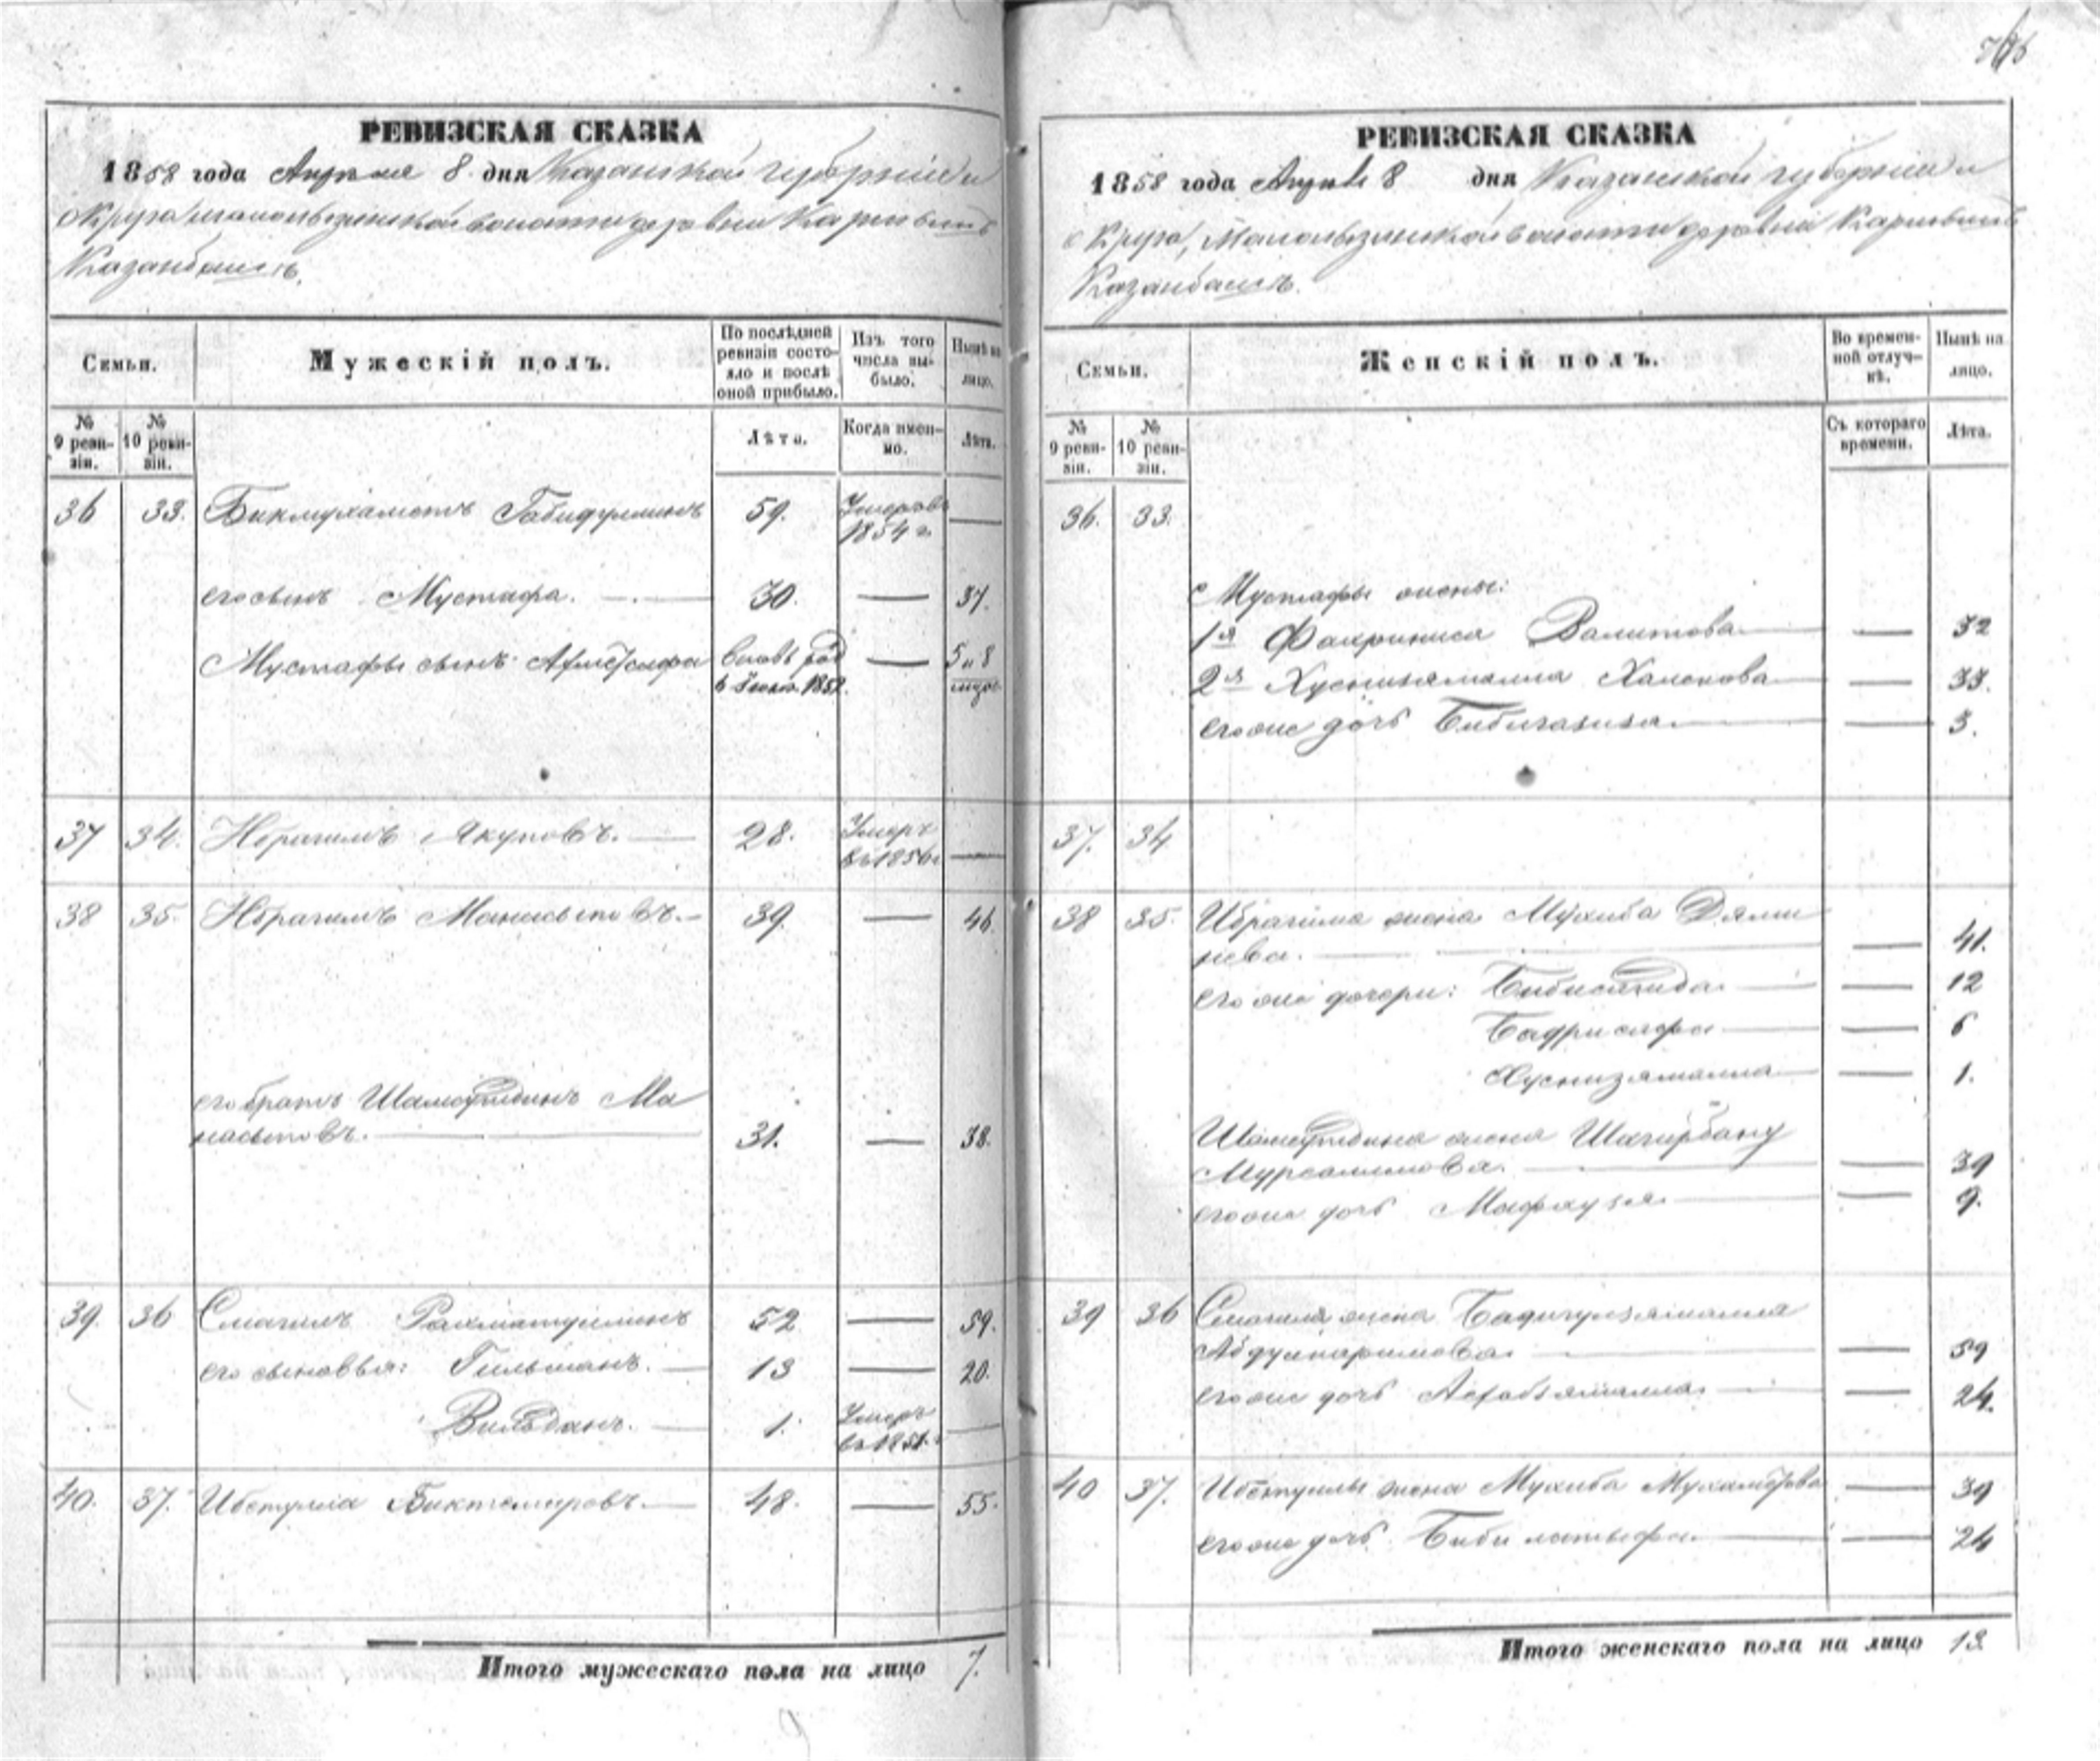 РЕВИЗСКАЯ СКАЗКА
1858 года Апреля 8 дня Казанской губернии и
округа Малоатызинской волости деревни
Казанбашъ.
Семьи.
Мужескій полъ.
По послѣдней
ревизіи состо-
яло и послѣ
оной прибыло.
Изъ того
числа вы-
было.
Нынѣ на
лицо.
№
9 реви-
зіи.
№
10 реви-
зіи.
Лѣта.
Когда имен-
но.
Лѣта.
36 33. Бикмухаметъ Габидуллинъ 59. Умеръ въ —
1854 г.
его сынъ Мустафа. — 30. — 37.
Мустафы сынъ вновь род — 5 и 8
1852. мѣся.
37 34. Ибрагимъ Якуповъ. — 28. Умеръ
въ 1856 г —
38 35. Ибрагимъ Манасыповъ. — 39. — 46.
его братъ Ма
насыповъ. — 31. — 38.
39. 36 Смагилъ Рахматуллинъ 52 — 59.
его сыновья: Гильманъ. — 13 — 20.
Вильданъ. — 1. Умеръ —
въ 1851 г
40. 37. Ибетулла Биктемировъ. — 48. — 55.
Итого мужескаго пола на лицо 7.
РЕВИЗСКАЯ СКАЗКА
1858 года Апреля 8 дня Казанской губернии и
округа, волости деревни
Казанбашъ.
Семьи.
Женскій полъ.
Во времен-
ной отлуч-
кѣ.
Нынѣ на
лицо.
№
9 реви-
зіи.
№
10 реви-
зіи.
Съ котораго
времени.
Лѣта.
36. 33.
Мустафы жены:
1я Фахриниса Валитова — — 32
2я Хуснизямалла — 33.
его же дочь Бибигазиза — — 3.
37. 34
38 35. Ибрагима жена Мухиба Дями
нева. — — 41.
его же дочери: — — 12
Бадрисафа — — 6
Хуснизямалла — — 1.
жена Шагирбану
Мурсалимова. — — 39
его же дочь Мафруза. — — 9.
39 36 Смагила жена Бадигулзямалла
Абдулкаримова — — 59
его же дочь — — 24.
40 37. Ибетуллы жена Мухиба — 39
его же дочь Биби латыфа. — — 24
Итого женскаго пола на лицо 13.